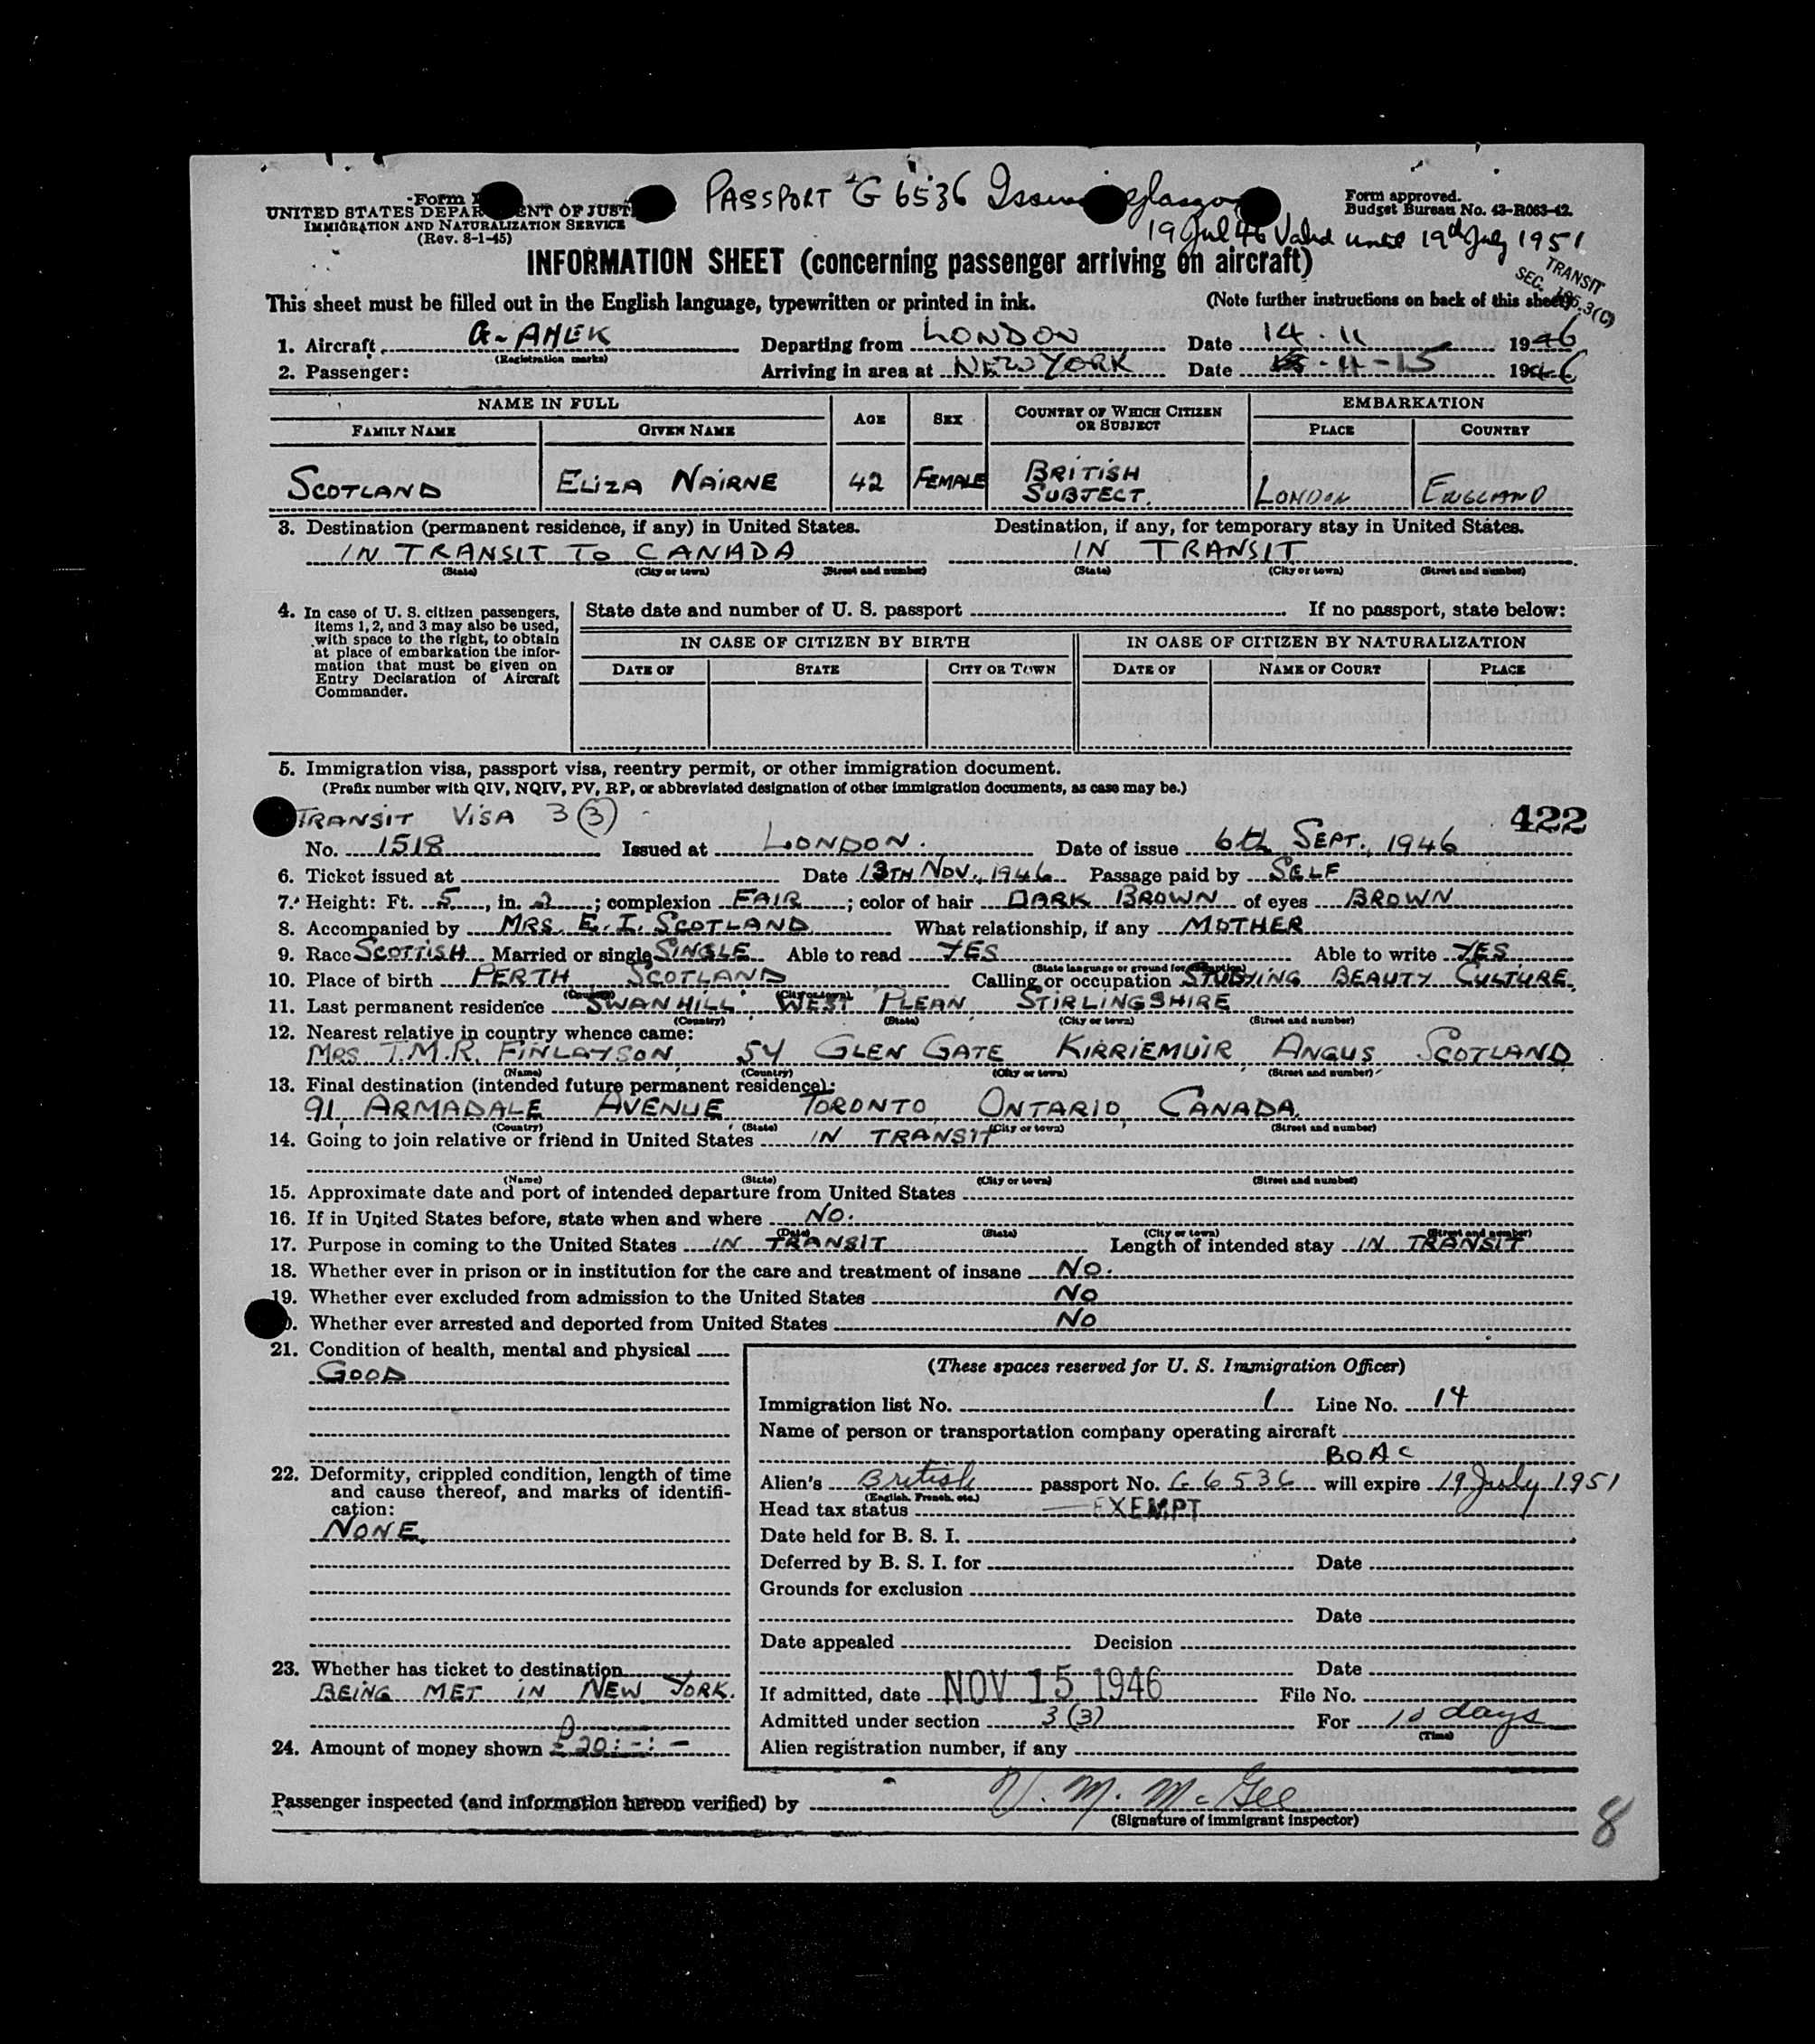 Form
PASSPORT G 6536 Issued Glasgow
Form approved.
UNITED STATES DEPARTMENT OF JUSTICE
Budget Bureau No. 43-R063-42.
IMMIGRATION AND NATURALIZATION SERVICE
(Rev. 8-1-45)
19 Jul 46 Valid until 19th July 1951
INFORMATION SHEET (concerning passenger arriving on aircraft)
TRANSIT
SEC. 175.3(C)
This sheet must be filled out in the English language, typewritten or printed in ink. (Note further instructions on back of this sheet)
1. Aircraft G-AHEK Departing from LONDON Date 14.11 1946
(Registration marks)
2. Passenger: Arriving in area at NEW YORK Date 11-15 1946
NAME IN FULL AGE SEX COUNTRY OF WHICH CITIZEN OR SUBJECT EMBARKATION
FAMILY NAME GIVEN NAME PLACE COUNTRY
SCOTLAND ELIZA NAIRNE 42 FEMALE BRITISH SUBJECT. LONDON ENGLAND
3. Destination (permanent residence, if any) in United States. Destination, if any, for temporary stay in United States.
IN TRANSIT TO CANADA IN TRANSIT
(State) (City or town) (Street and number) (State) (City or town) (Street and number)
4. In case of U. S. citizen passengers, items 1, 2, and 3 may also be used, with space to the right, to obtain at place of embarkation the information that must be given on Entry Declaration of Aircraft Commander.
State date and number of U. S. passport If no passport, state below:
IN CASE OF CITIZEN BY BIRTH IN CASE OF CITIZEN BY NATURALIZATION
DATE OF STATE CITY OR TOWN DATE OF NAME OF COURT PLACE
5. Immigration visa, passport visa, reentry permit, or other immigration document.
(Prefix number with QIV, NQIV, PV, RP, or abbreviated designation of other immigration documents, as case may be.)
TRANSIT VISA 3(3) 422
No. 1518 Issued at LONDON. Date of issue 6th SEPT., 1946
6. Ticket issued at Date 13TH NOV., 1946 Passage paid by SELF
7. Height: Ft. 5, in. 2; complexion FAIR; color of hair DARK BROWN of eyes BROWN
8. Accompanied by MRS. E. I. SCOTLAND What relationship, if any MOTHER
9. Race SCOTTISH Married or single SINGLE Able to read YES Able to write YES
(State language or ground for exemption)
10. Place of birth PERTH SCOTLAND Calling or occupation STUDYING BEAUTY CULTURE.
(Country) (City or town)
11. Last permanent residence SWANHILL, WEST PLEAN, STIRLINGSHIRE
(Country) (State) (City or town) (Street and number)
12. Nearest relative in country whence came:
MRS T.M.R. FINLAYSON, 54 GLEN GATE KIRRIEMUIR ANGUS SCOTLAND
(Name) (Country) (City or town) (Street and number)
13. Final destination (intended future permanent residence):
91, ARMADALE AVENUE, TORONTO, ONTARIO, CANADA.
(Country) (State) (City or town) (Street and number)
14. Going to join relative or friend in United States IN TRANSIT
(Name) (State) (City or town) (Street and number)
15. Approximate date and port of intended departure from United States
16. If in United States before, state when and where NO.
(Date) (State) (City or town) (Street and number)
17. Purpose in coming to the United States IN TRANSIT Length of intended stay IN TRANSIT
18. Whether ever in prison or in institution for the care and treatment of insane NO.
19. Whether ever excluded from admission to the United States NO
Whether ever arrested and deported from United States NO
21. Condition of health, mental and physical
GOOD
22. Deformity, crippled condition, length of time and cause thereof, and marks of identification:
NONE.
23. Whether has ticket to destination
BEING MET IN NEW YORK.
24. Amount of money shown £20:-:-
(These spaces reserved for U. S. Immigration Officer)
Immigration list No. 1 Line No. 14
Name of person or transportation company operating aircraft
BOAC
Alien's British passport No. G 6536 will expire 19 July 1951
(English, French, etc.)
Head tax status EXEMPT
Date held for B. S. I.
Deferred by B. S. I. for Date
Grounds for exclusion
Date
Date appealed Decision
Date
If admitted, date NOV 15 1946 File No.
Admitted under section 3(3) For 10 days
(Time)
Alien registration number, if any
Passenger inspected (and information hereon verified) by V. M. McGee
(Signature of immigrant inspector)
8